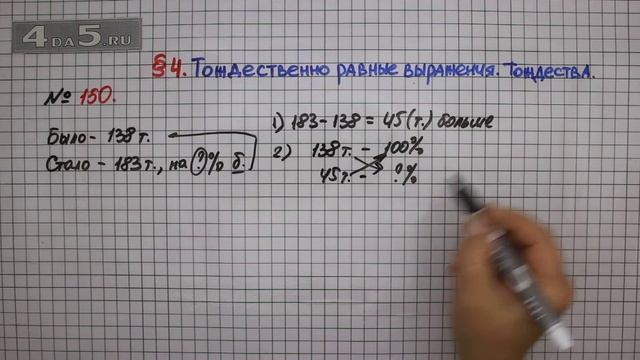 4DA5.RU
§4. Тождественно равные выражения. Тождества.
№ 150.
Было - 138 т.
Стало - 183 т., на ?% б.
1) 183 - 138 = 45 (т.) больше
2) 138 т. - 100%
45 т. - ?%